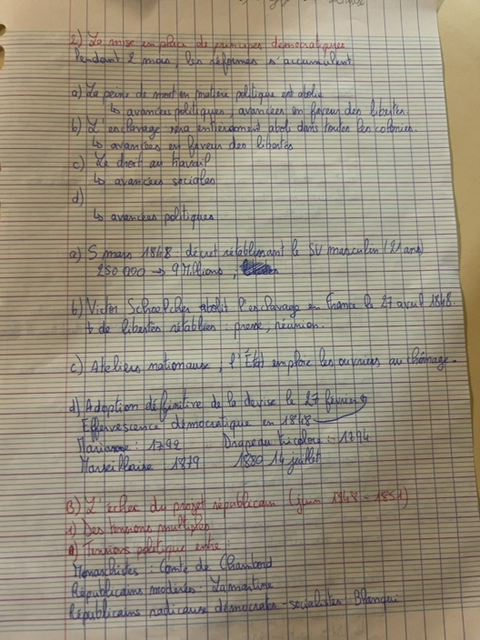 2) La mise en place de principes démocratiques
Pendant 2 mois, les réformes s'accumulent
a) La peine de mort en matière politique est abolie
↳ avancées politiques, avancées en faveur des libertés.
b) L'esclavage sera entièrement aboli dans toutes les colonies.
↳ avancées en faveur des libertés
c) Le droit au travail
↳ avancées sociales
d)
↳ avancées politiques
a) 5 mars 1848 décret rétablissant le SU masculin (21 ans)
250 000 → 9 Millions,
b) Victor Schoelcher abolit l'esclavage en France le 27 avril 1848.
+ de libertés rétablies : presse, réunion.
c) Ateliers nationaux, l'État emploie les ouvriers au chômage.
d) Adoption définitive de la devise le 27 février
Effervescence démocratique en 1848
Marianne : 1792 Drapeau tricolore : 1794
Marseillaise : 1879 1880 14 juillet
B) L'échec du projet républicain (juin 1848 - 1851)
1) Des tensions multiples
a) Tensions politique entre :
Monarchistes : Comte de Chambord
Républicains modérés : Lamartine
Républicains radicaux démocrates-socialistes : Blanqui